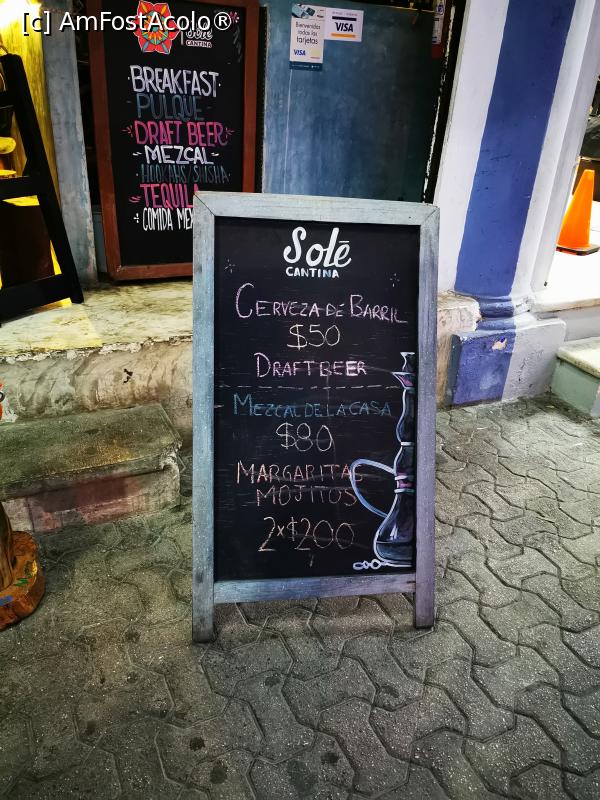 [c] AmFostAcolo®
Solē
CANTINA
BREAKFAST
PULQUE
DRAFT BEER
MEZCAL
HOOKAHS/SHISHA
TEQUILA
COMIDA MEX
Bienvenidas
todas las
tarjetas
VISA
VISA
Solē
CANTINA
CERVEZA DE BARRIL
$50
DRAFT BEER
MEZCAL DE LA CASA
$80
MARGARITAS
MOJITOS
2x$200